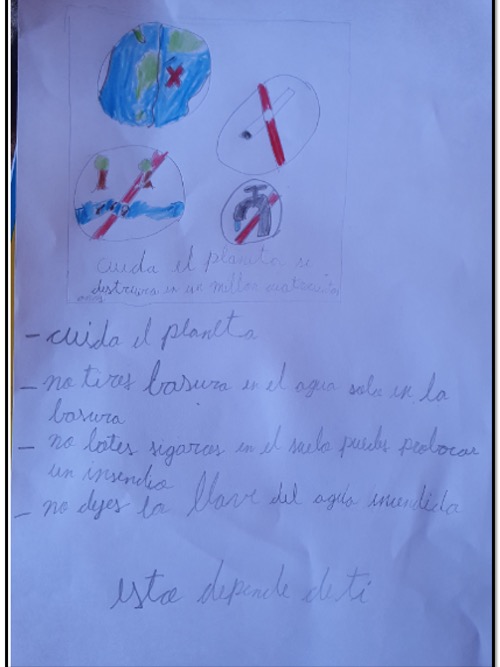 cuida el planeta se
destruira en un millon cuatrocientos
años
- cuida el planeta
- no tires basura en el agua solo en la
basura
- no botes sigaros en el suelo puedes probocar
un insendio
- no dejes la llave del agua incendida
esto depende de ti